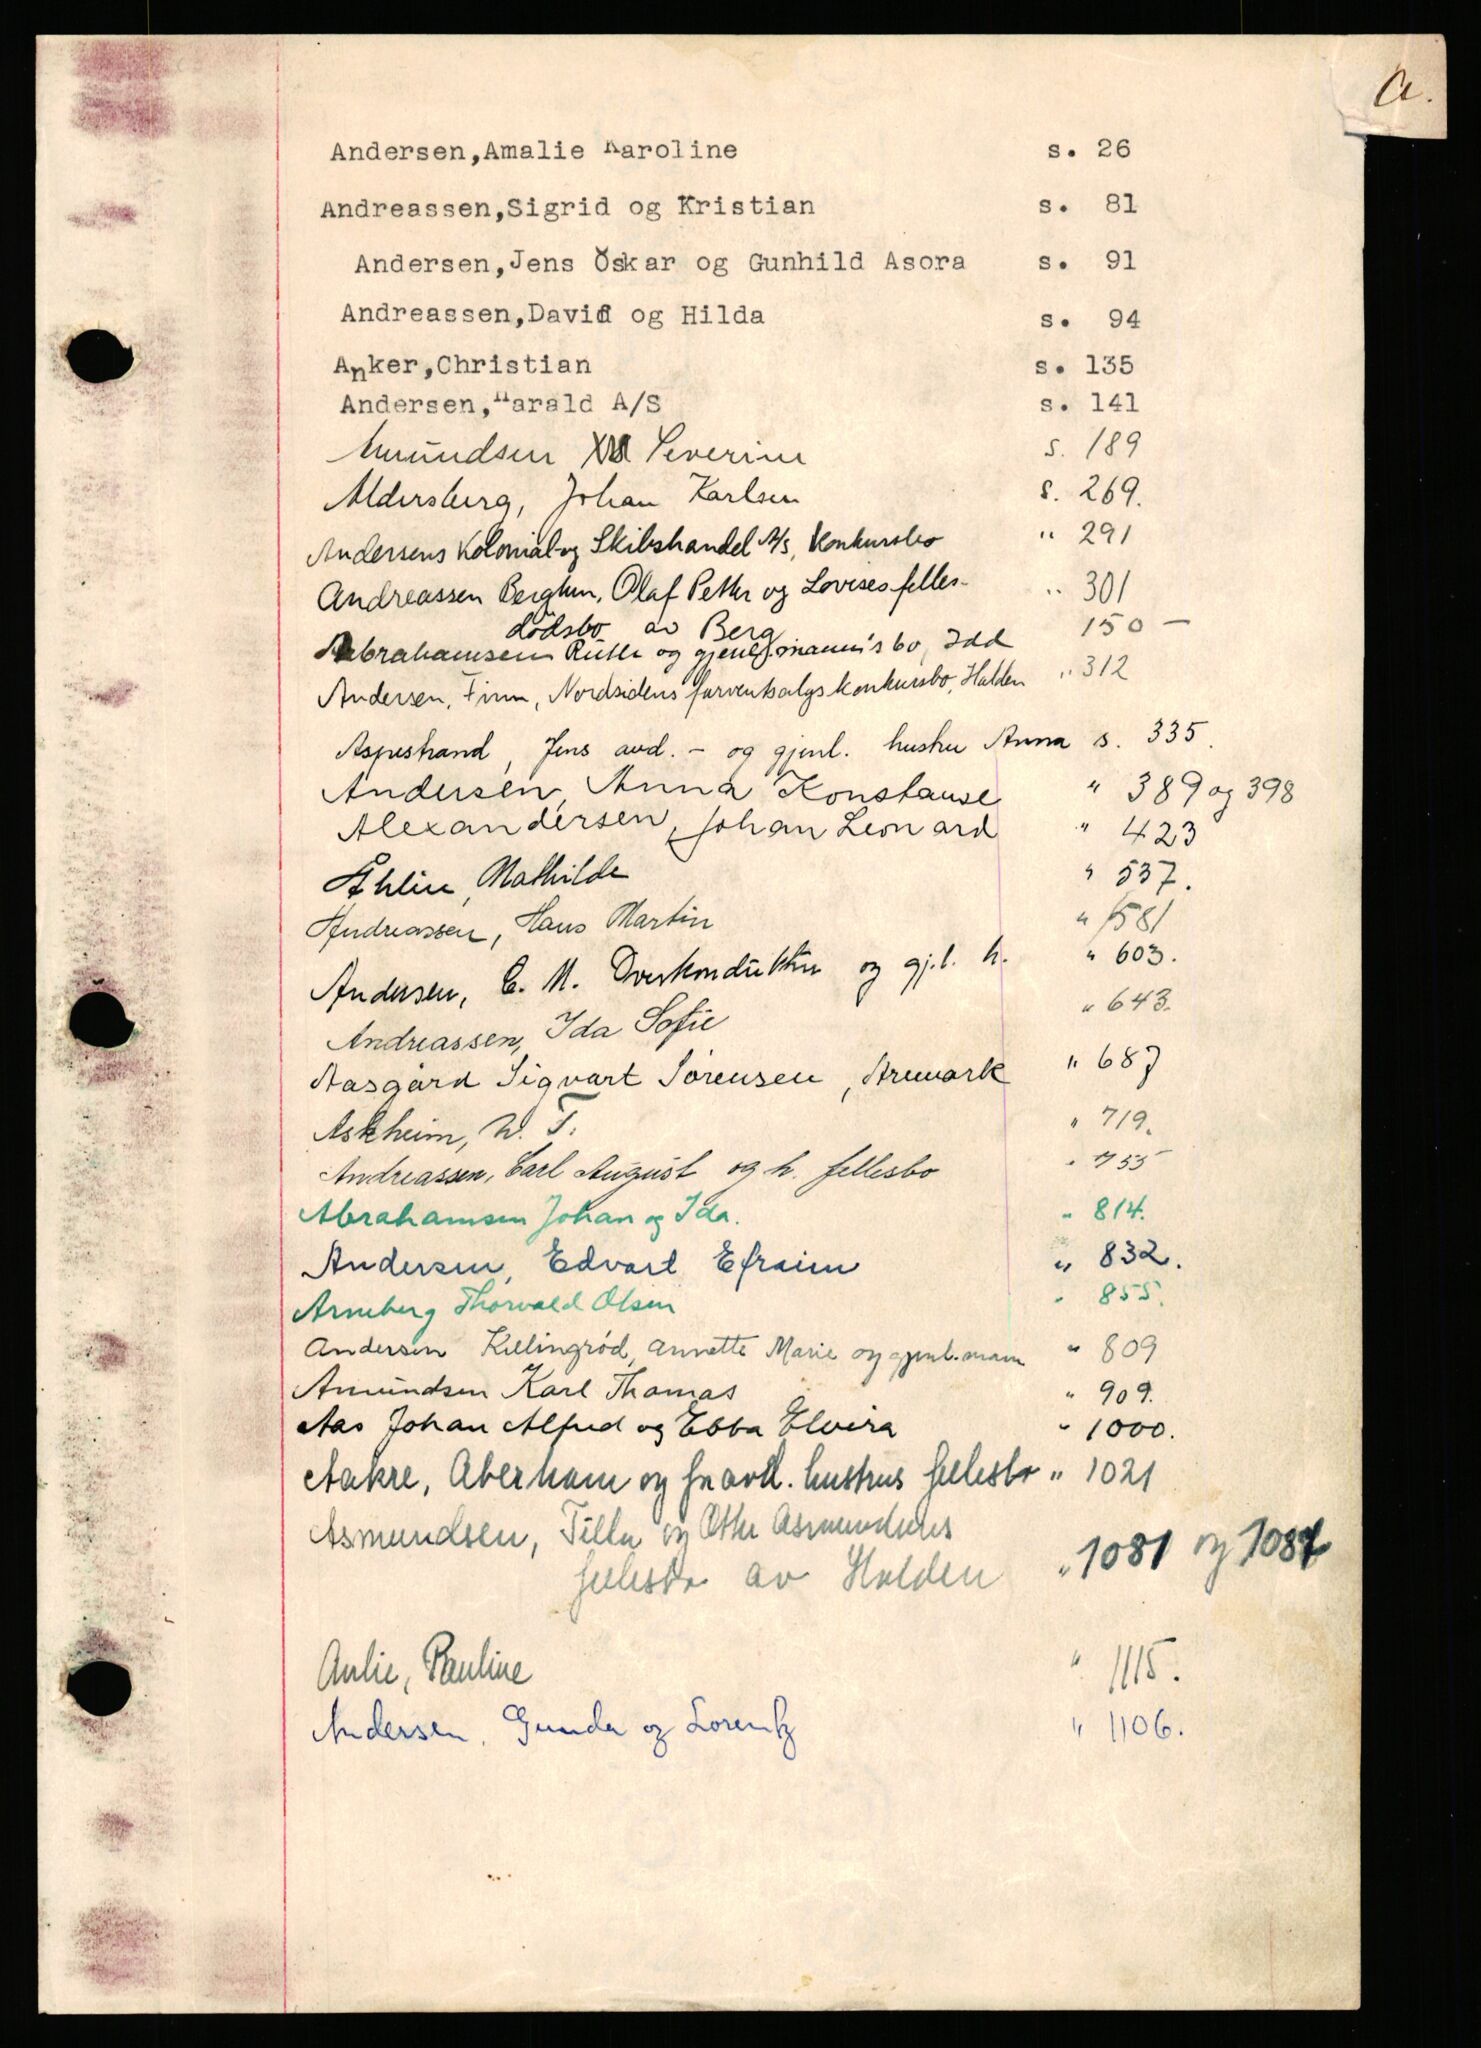 a.
Andersen,Amalie Karoline s. 26
Andreassen,Sigrid og Kristian s. 81
Andersen,Jens Oskar og Gunhild Asora s. 91
Andreassen,David og Hilda s. 94
Anker,Christian s. 135
Andersen,Harald A/S s. 141
Amundsen Severine s. 189
Aldersberg, Johan Karlsen s. 269.
Andersens Kolonial og Skibshandel A/s, konkursbo " 291
Andreassen Berghum, Olaf Petter og Lovises felles- " 301
dødsbo av Berg
Abrahamsen Rutle og gjenl. mann's bo, Idd 150 —
Andersen, Finn, Nordsidens farveutsalgs konkursbo, Halden " 312
Aspestrand, Jens avd. - og gjenl. hustru Anna s. 335.
Andersen, Anna Konstanse " 389 og 398
Alexandersen, Johan Leonard " 423
Ahlin, Mathilde " 537.
Andreassen, Hans Martin " 581
Andersen, C. M. Overkonduktør og gj.l. h. " 603.
Andreassen, Ida Sofie " 643.
Aasgård Sigvart Sørensen, Aremark " 687
Askheim, W. T. " 719.
Andreassen, Carl August og h. fellesbo " 755
Abrahamsen Johan og Ida. " 814.
Andersen, Edvart Efraim " 832.
Arneberg Thorvald Olsen " 855.
Andersen Killingrød, Annette Marie og gjenl. mann " 809
Amundsen Karl Thomas " 909.
Aas Johan Alfred og Ebba Elvira " 1000.
Aakre, Aberham og fr. avd. hustrus fellesbo " 1021
Asmundsen, Tilla og Otto Asmundsens
fellesbo av Halden " 1081 og 1084
Anlie, Pauline " 1115.
Andersen, Gunda og Lorentz " 1106.